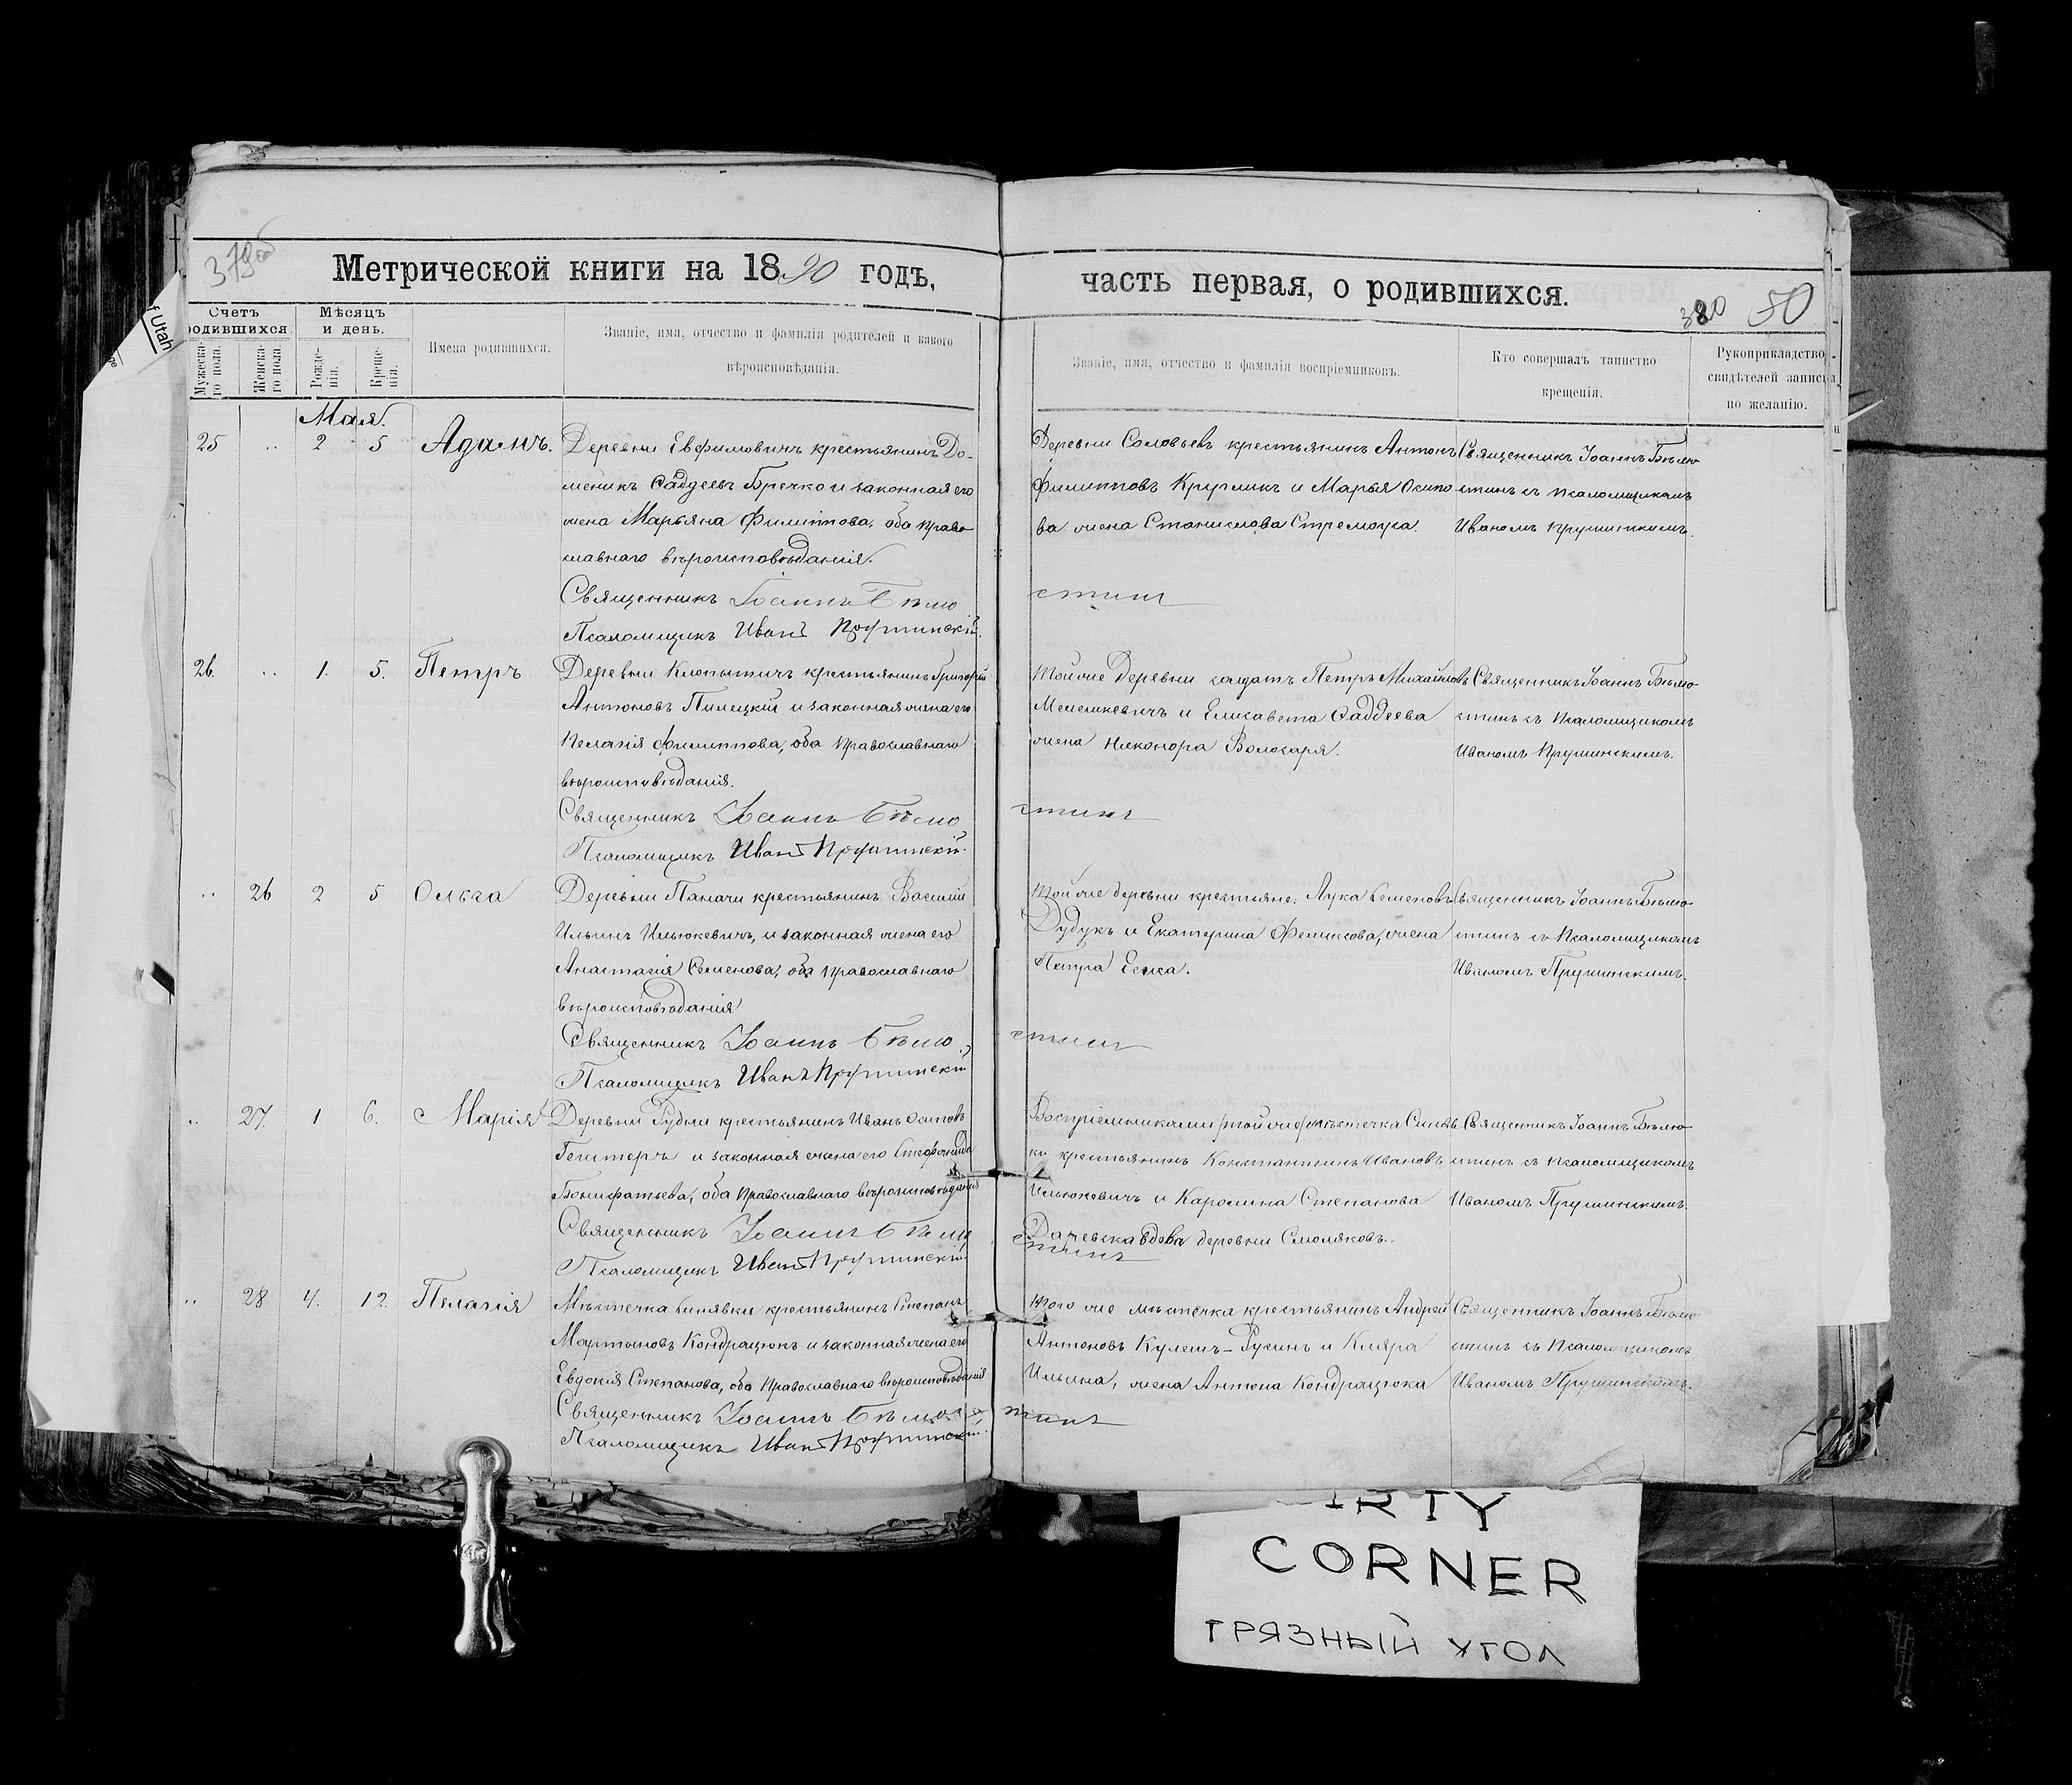 379об
Метрической книги на 1890 годъ,
Счетъ родившихся.
Мужеска-го пола.
Женска-го пола.
Мѣсяцъ и день.
Рожде-нія.
Креще-нія.
Имена родившихся.
Званіе, имя, отчество и фамилія родителей и какого
вѣроисповѣданія.
Мая.
25 .. 2 5 Адамъ. Деревни Евфимовичъ крестьянинъ До-
меникъ Фаддеевъ Бречко и законная его
жена Марьяна Филиппова, оба право-
славнаго вѣроисповѣданія.
Священникъ Іоаннъ Бѣлю
Псаломщикъ Иванъ Прушинскій.
26. .. 1. 5. Петръ Деревни Клопытичъ крестьянинъ Григорій
Антоновъ Пилецкій и законная жена его
Пелагія Филиппова, оба Православнаго
вѣроисповѣданія.
Священникъ Іоаннъ Бѣлю
Псаломщикъ Иванъ Прушинскій.
.. 26 2 5 Ольга Деревни Паначи крестьянинъ Василій
Ильинъ Ильюкевичъ, и законная жена его
Анастасія Семенова, оба православнаго
вѣроисповѣданія
Священникъ Іоаннъ Бѣлю
Псаломщикъ Иванъ Прушинскій
.. 27. 1 6. Марія Деревни Рудни крестьянинъ Иванъ Осиповъ
и законная жена его
Бонифатьева, оба Православнаго вѣроисповѣданія
Священникъ Іоаннъ Бѣлю
Псаломщикъ Иванъ Прушинскій
.. 28 4. 12. Пелагія Мѣстечка Синявки крестьянинъ Степанъ
Мартыновъ Кондрацюкъ и законная жена его
Евдокія Степанова, оба Православнаго вѣроисповѣданія
Священникъ Іоаннъ Бѣлю
Псаломщикъ Иванъ Прушинскій.
часть первая, о родившихся.
380 50
Званіе, имя, отчество и фамилія воспріемниковъ.
Кто совершалъ таинство
крещенія.
Рукоприкладство
свидѣтелей записи
по желанію.
Деревни Соловьевъ крестьянинъ Антонъ Священникъ Іоаннъ Бѣлю-
Филипповъ Кругликъ и Марья Осипо стинъ съ псаломщикомъ
ва жена Станислава Стремоука. Иваномъ Прушинскимъ.
стинъ
Той же деревни солдатъ Петръ Михайловъ Священникъ Іоаннъ Бѣлю-
и Елисавета Фаддеева стинъ съ Псаломщикомъ
жена Никонора Волосаря. Иваномъ Прушинскимъ.
стинъ
Той же деревни крестьяне: Лука Семеновъ Священникъ Іоаннъ Бѣлю-
Дудукъ и Екатерина Феликсова, жена стинъ съ Псаломщикомъ
Петра Еська. Иваномъ Прушинскимъ.
стинъ
Воспріемниками мѣстечка Синяв Священникъ Іоаннъ Бѣлю-
ки крестьянинъ Константинъ Ивановъ стинъ съ псаломщикомъ
Ильюкевичъ и Каролина Степанова Иваномъ Прушинскимъ.
вдова деревни Смоляковъ.
стинъ
Того же мѣстечка крестьянинъ Андрей Священникъ Іоаннъ Бѣлю-
Антоновъ Кулешъ-Русинъ и Кляра стинъ съ Псаломщикомъ
Ильина, жена Антона Кондрацюка Иваномъ Прушинскимъ.
стинъ
CORNER
ГРЯЗНЫЙ УГОЛ
f Utah